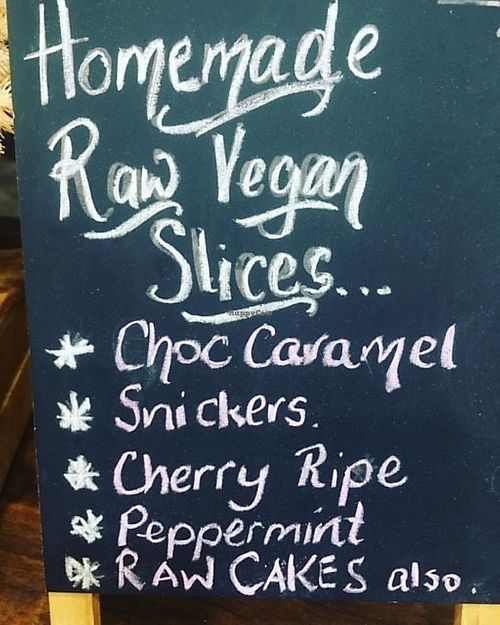 Homemade
Raw Vegan
Slices...
HappyCow
* Choc Caramel
* Snickers.
* Cherry Ripe
* Peppermint
* RAW CAKES also.